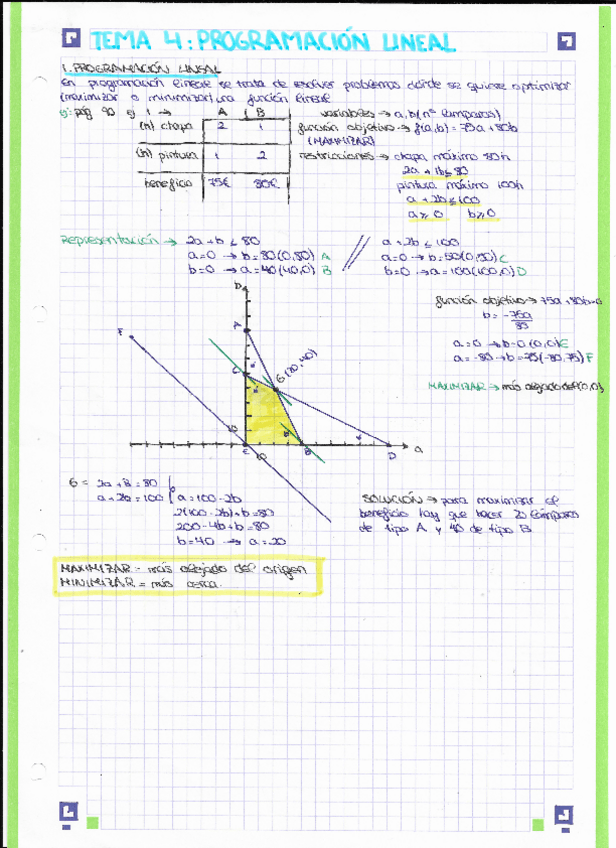 TEMA 4: PROGRAMACIÓN LINEAL
1. PROGRAMACIÓN LINEAL
En programación lineal se trata de resolver problemas donde se quiere optimizar
(maximizar o minimizar) una función lineal
ej: pág 90 ej 1 →
A B
(h) chapa 2 1
(h) pintura 1 2
beneficio 75€ 80€
variables → a, b (nº lámparas)
función objetivo → f(a,b) = 75a + 80b
(MAXIMIZAR)
restricciones → chapa máximo 80h
2a + 1b ≤ 80
pintura máximo 100h
a + 2b ≤ 100
a ≥ 0 b ≥ 0
Representación → 2a + b ≤ 80
a=0 → b=80 (0,80) A
b=0 → a=40 (40,0) B
a + 2b ≤ 100
a=0 → b=50 (0,50) C
b=0 → a=100 (100,0) D
función objetivo → 75a + 80b = 0
b = -75a
80
a=0 → b=0 (0,0) E
a=-80 → b=75 (-80,75) F
MAXIMIZAR → más alejado del (0,0)
b
F
A
C
G (20,40)
10
E
10
B
D
a
G = 2a + b = 80
a + 2b = 100
a = 100 - 2b
2(100 - 2b) + b = 80
200 - 4b + b = 80
b = 40 → a = 20
SOLUCIÓN → para maximizar el
beneficio hay que hacer 20 lámparas
de tipo A y 40 de tipo B
MAXIMIZAR = más alejado del origen
MINIMIZAR = más cerca